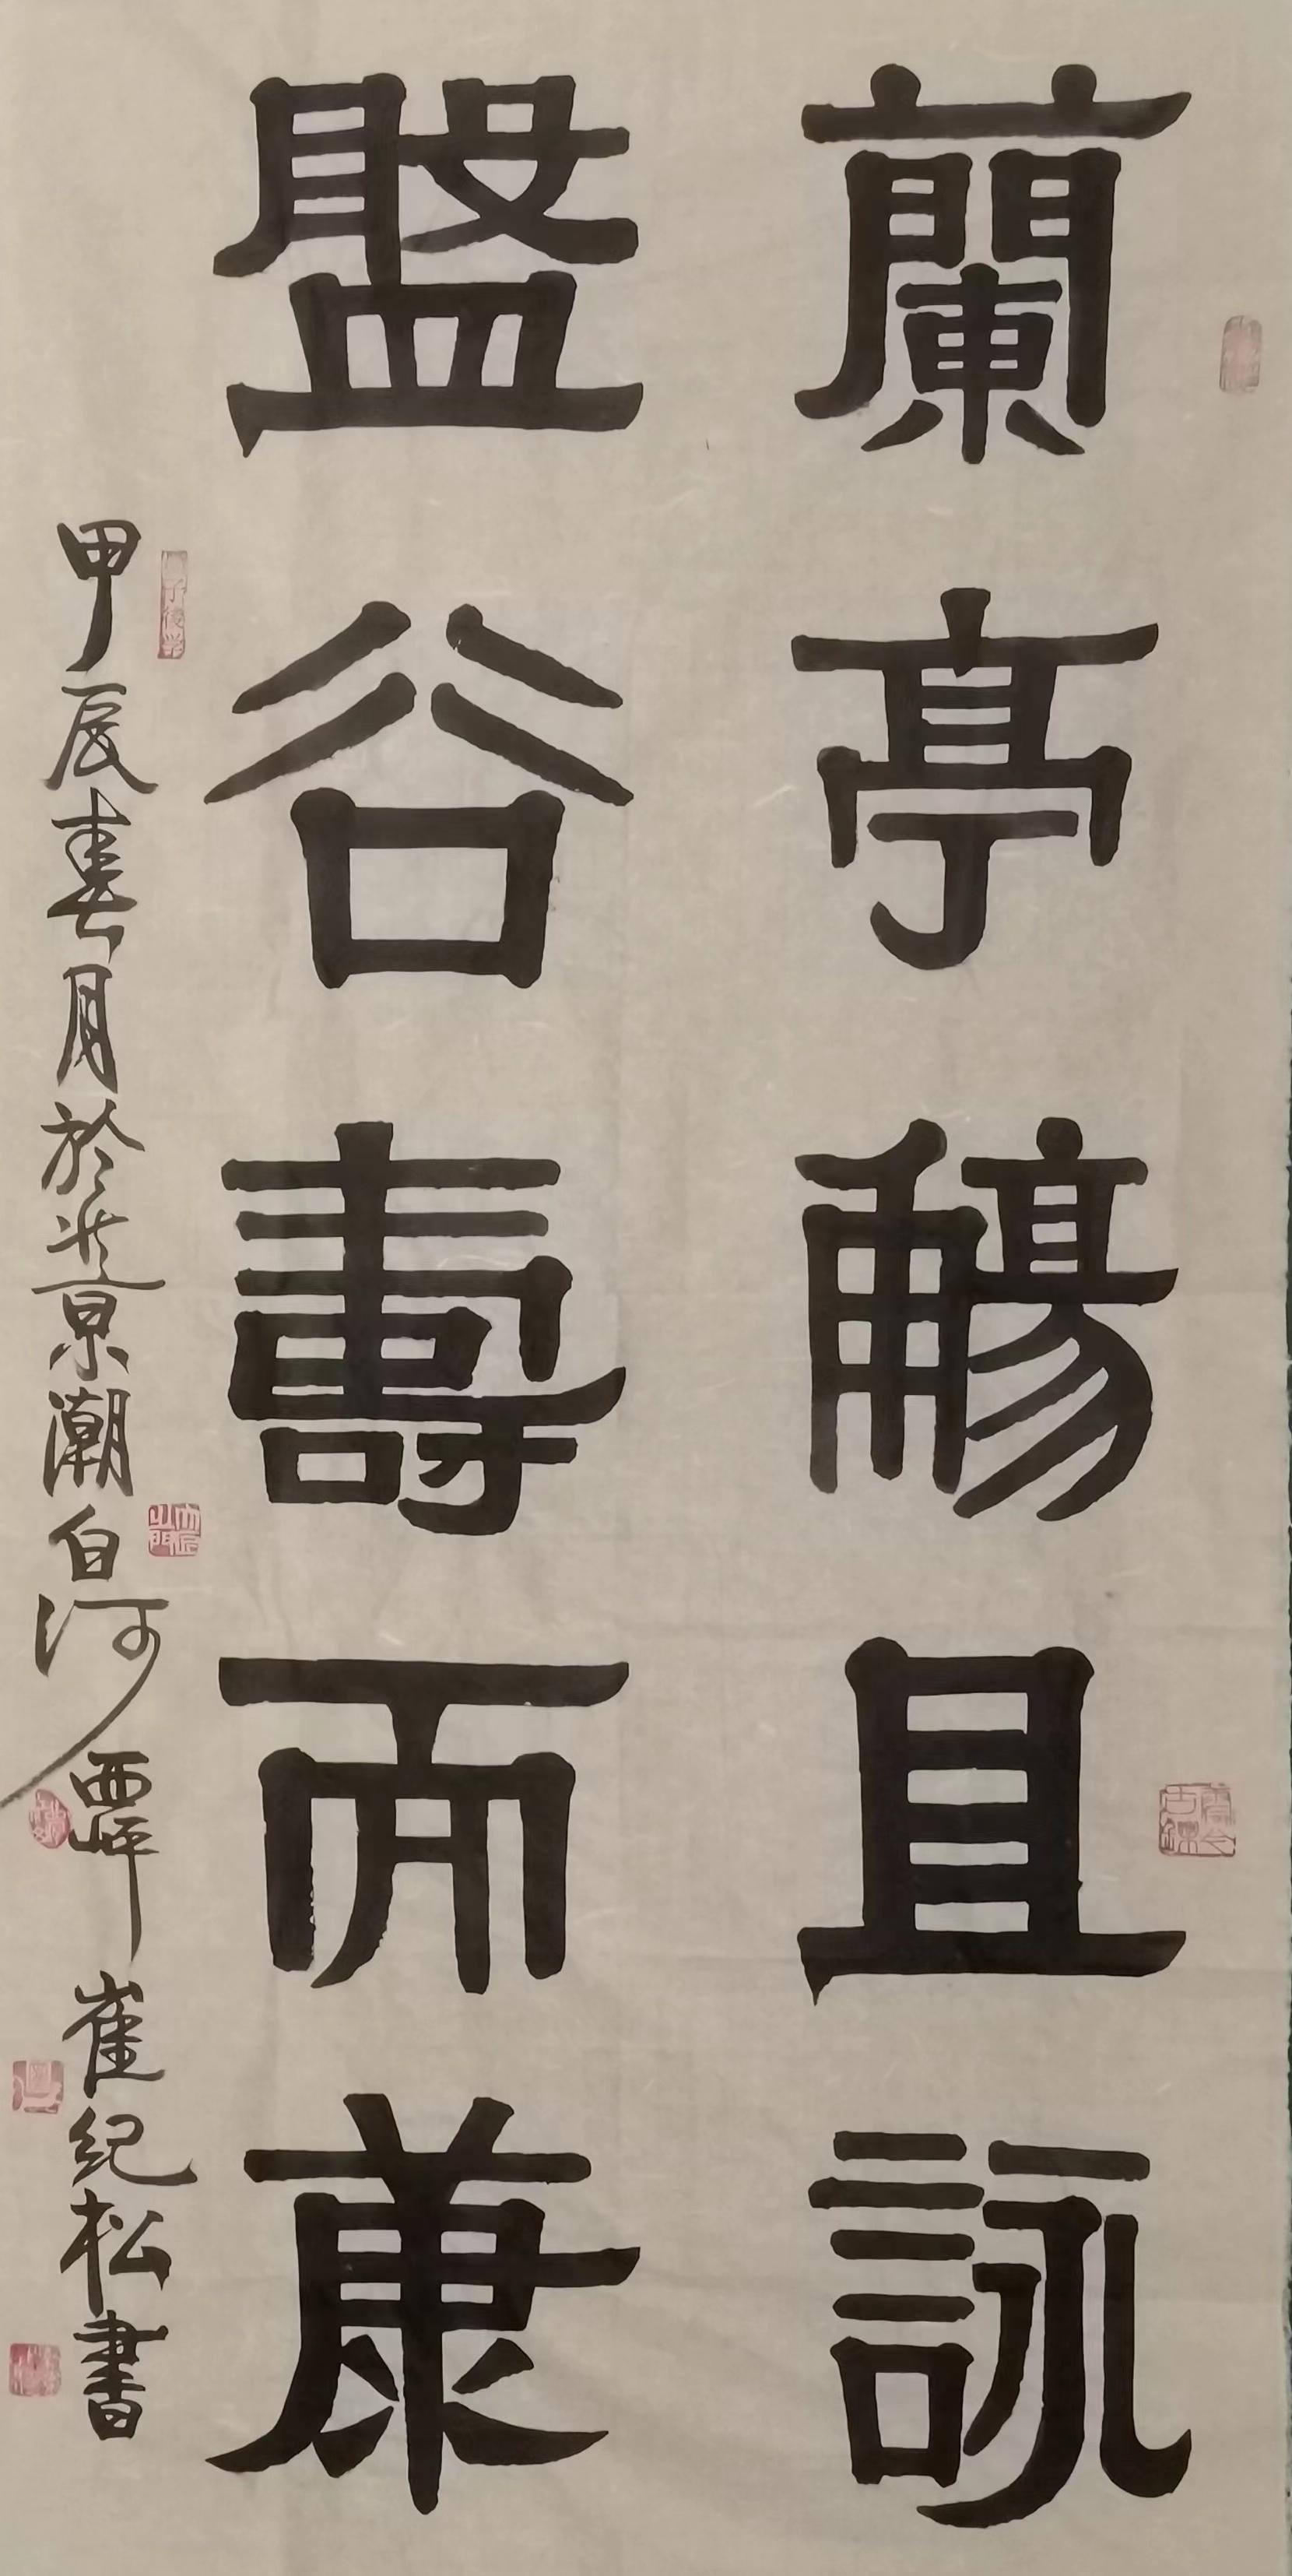 蘭亭觴且詠
盤谷壽而康
甲辰春月於北京潮白河西岸崔纪松書